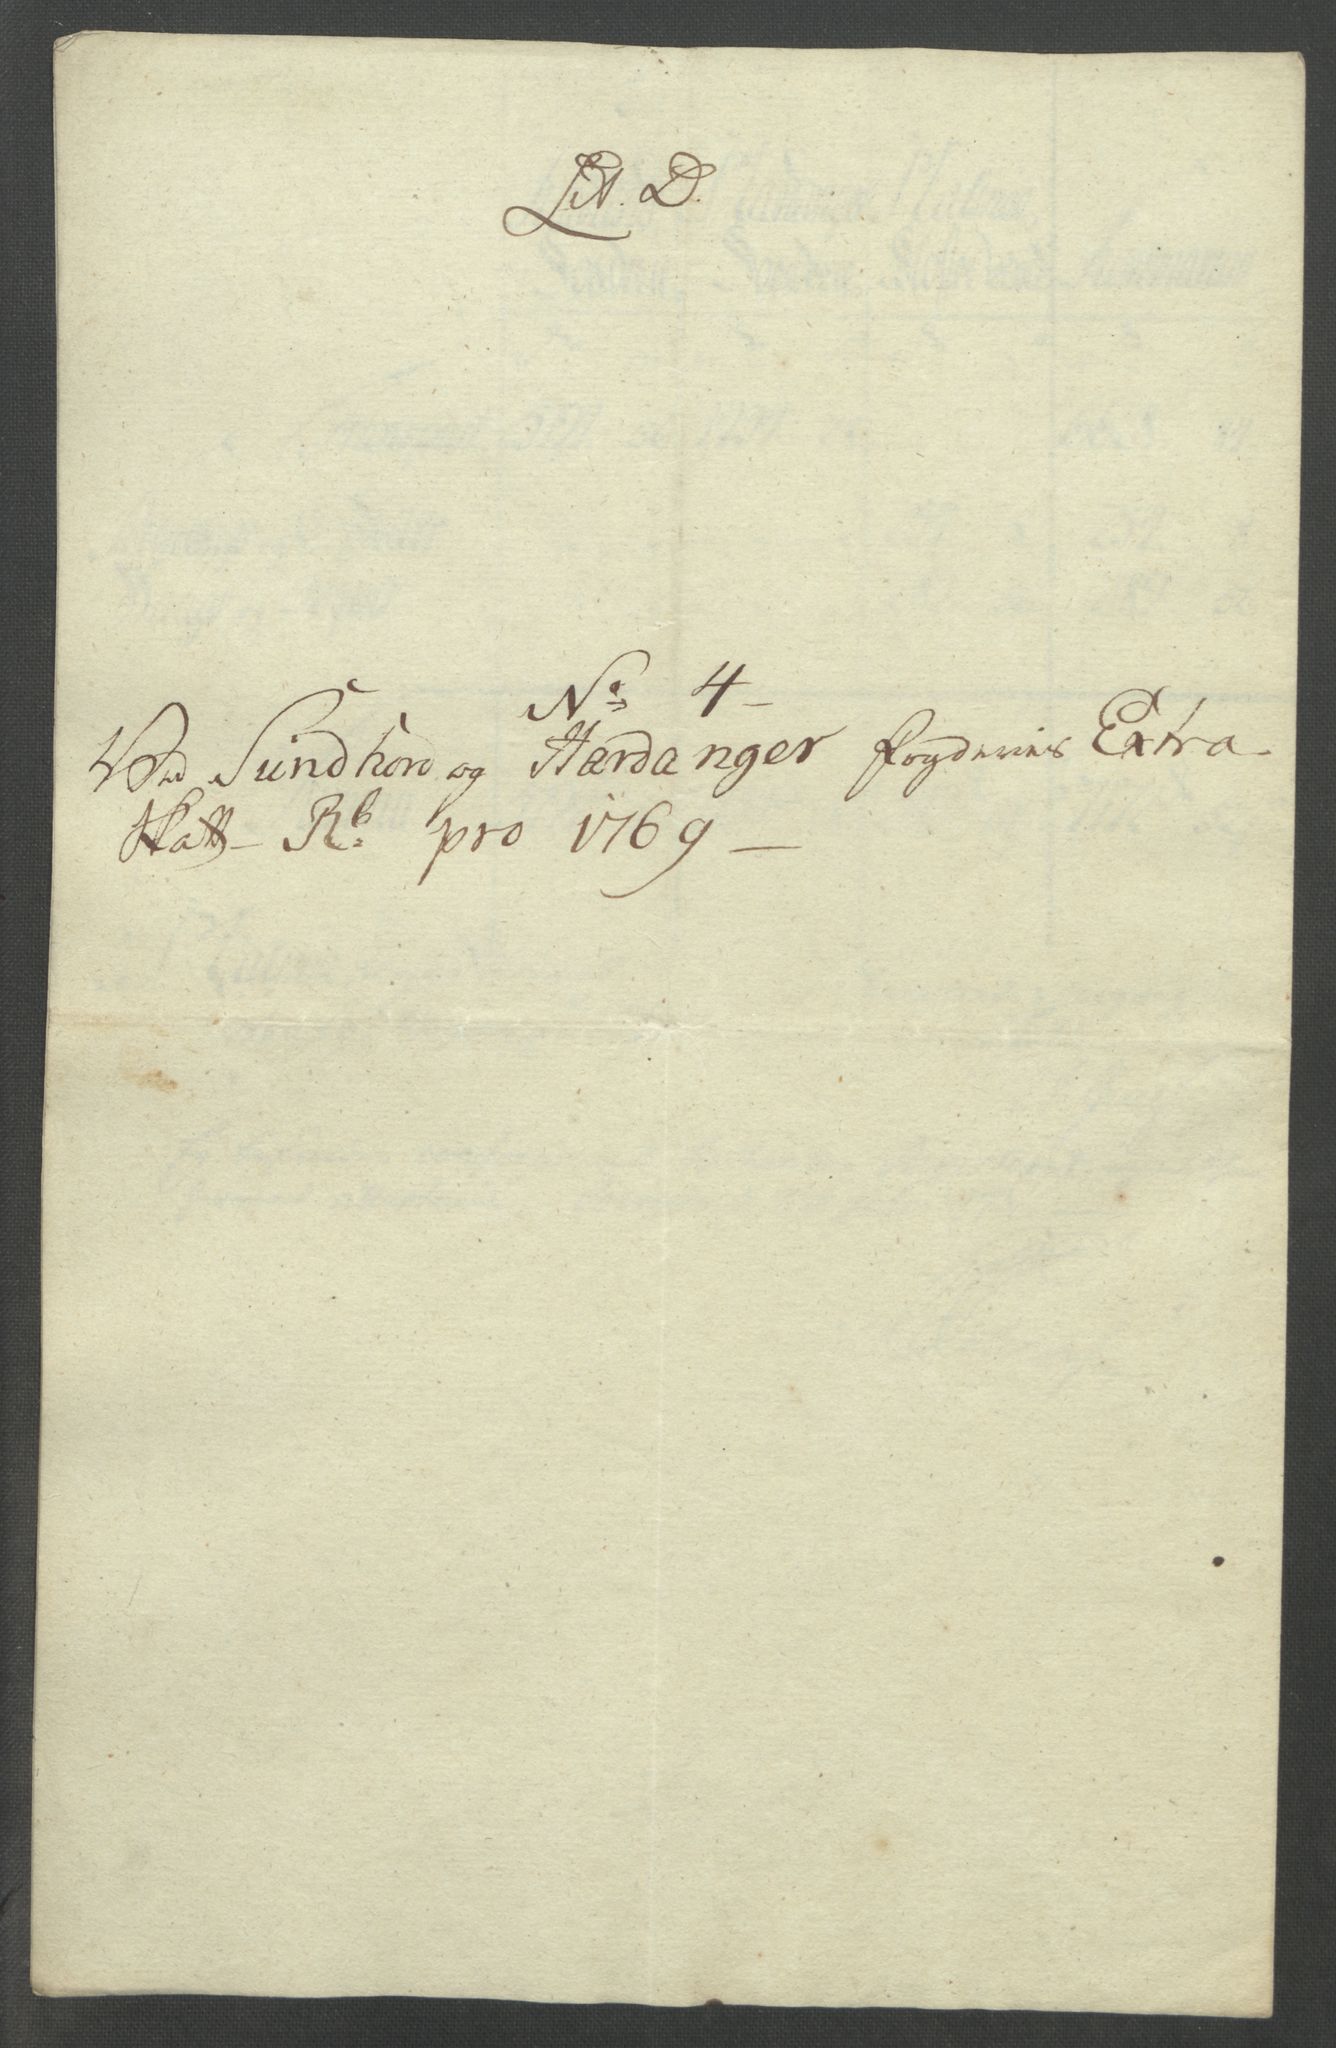 Lit. D.
No 4 —
Ved Sundhord og Hardanger fogderies Extra
Skatt- Rb: pro 1769 —